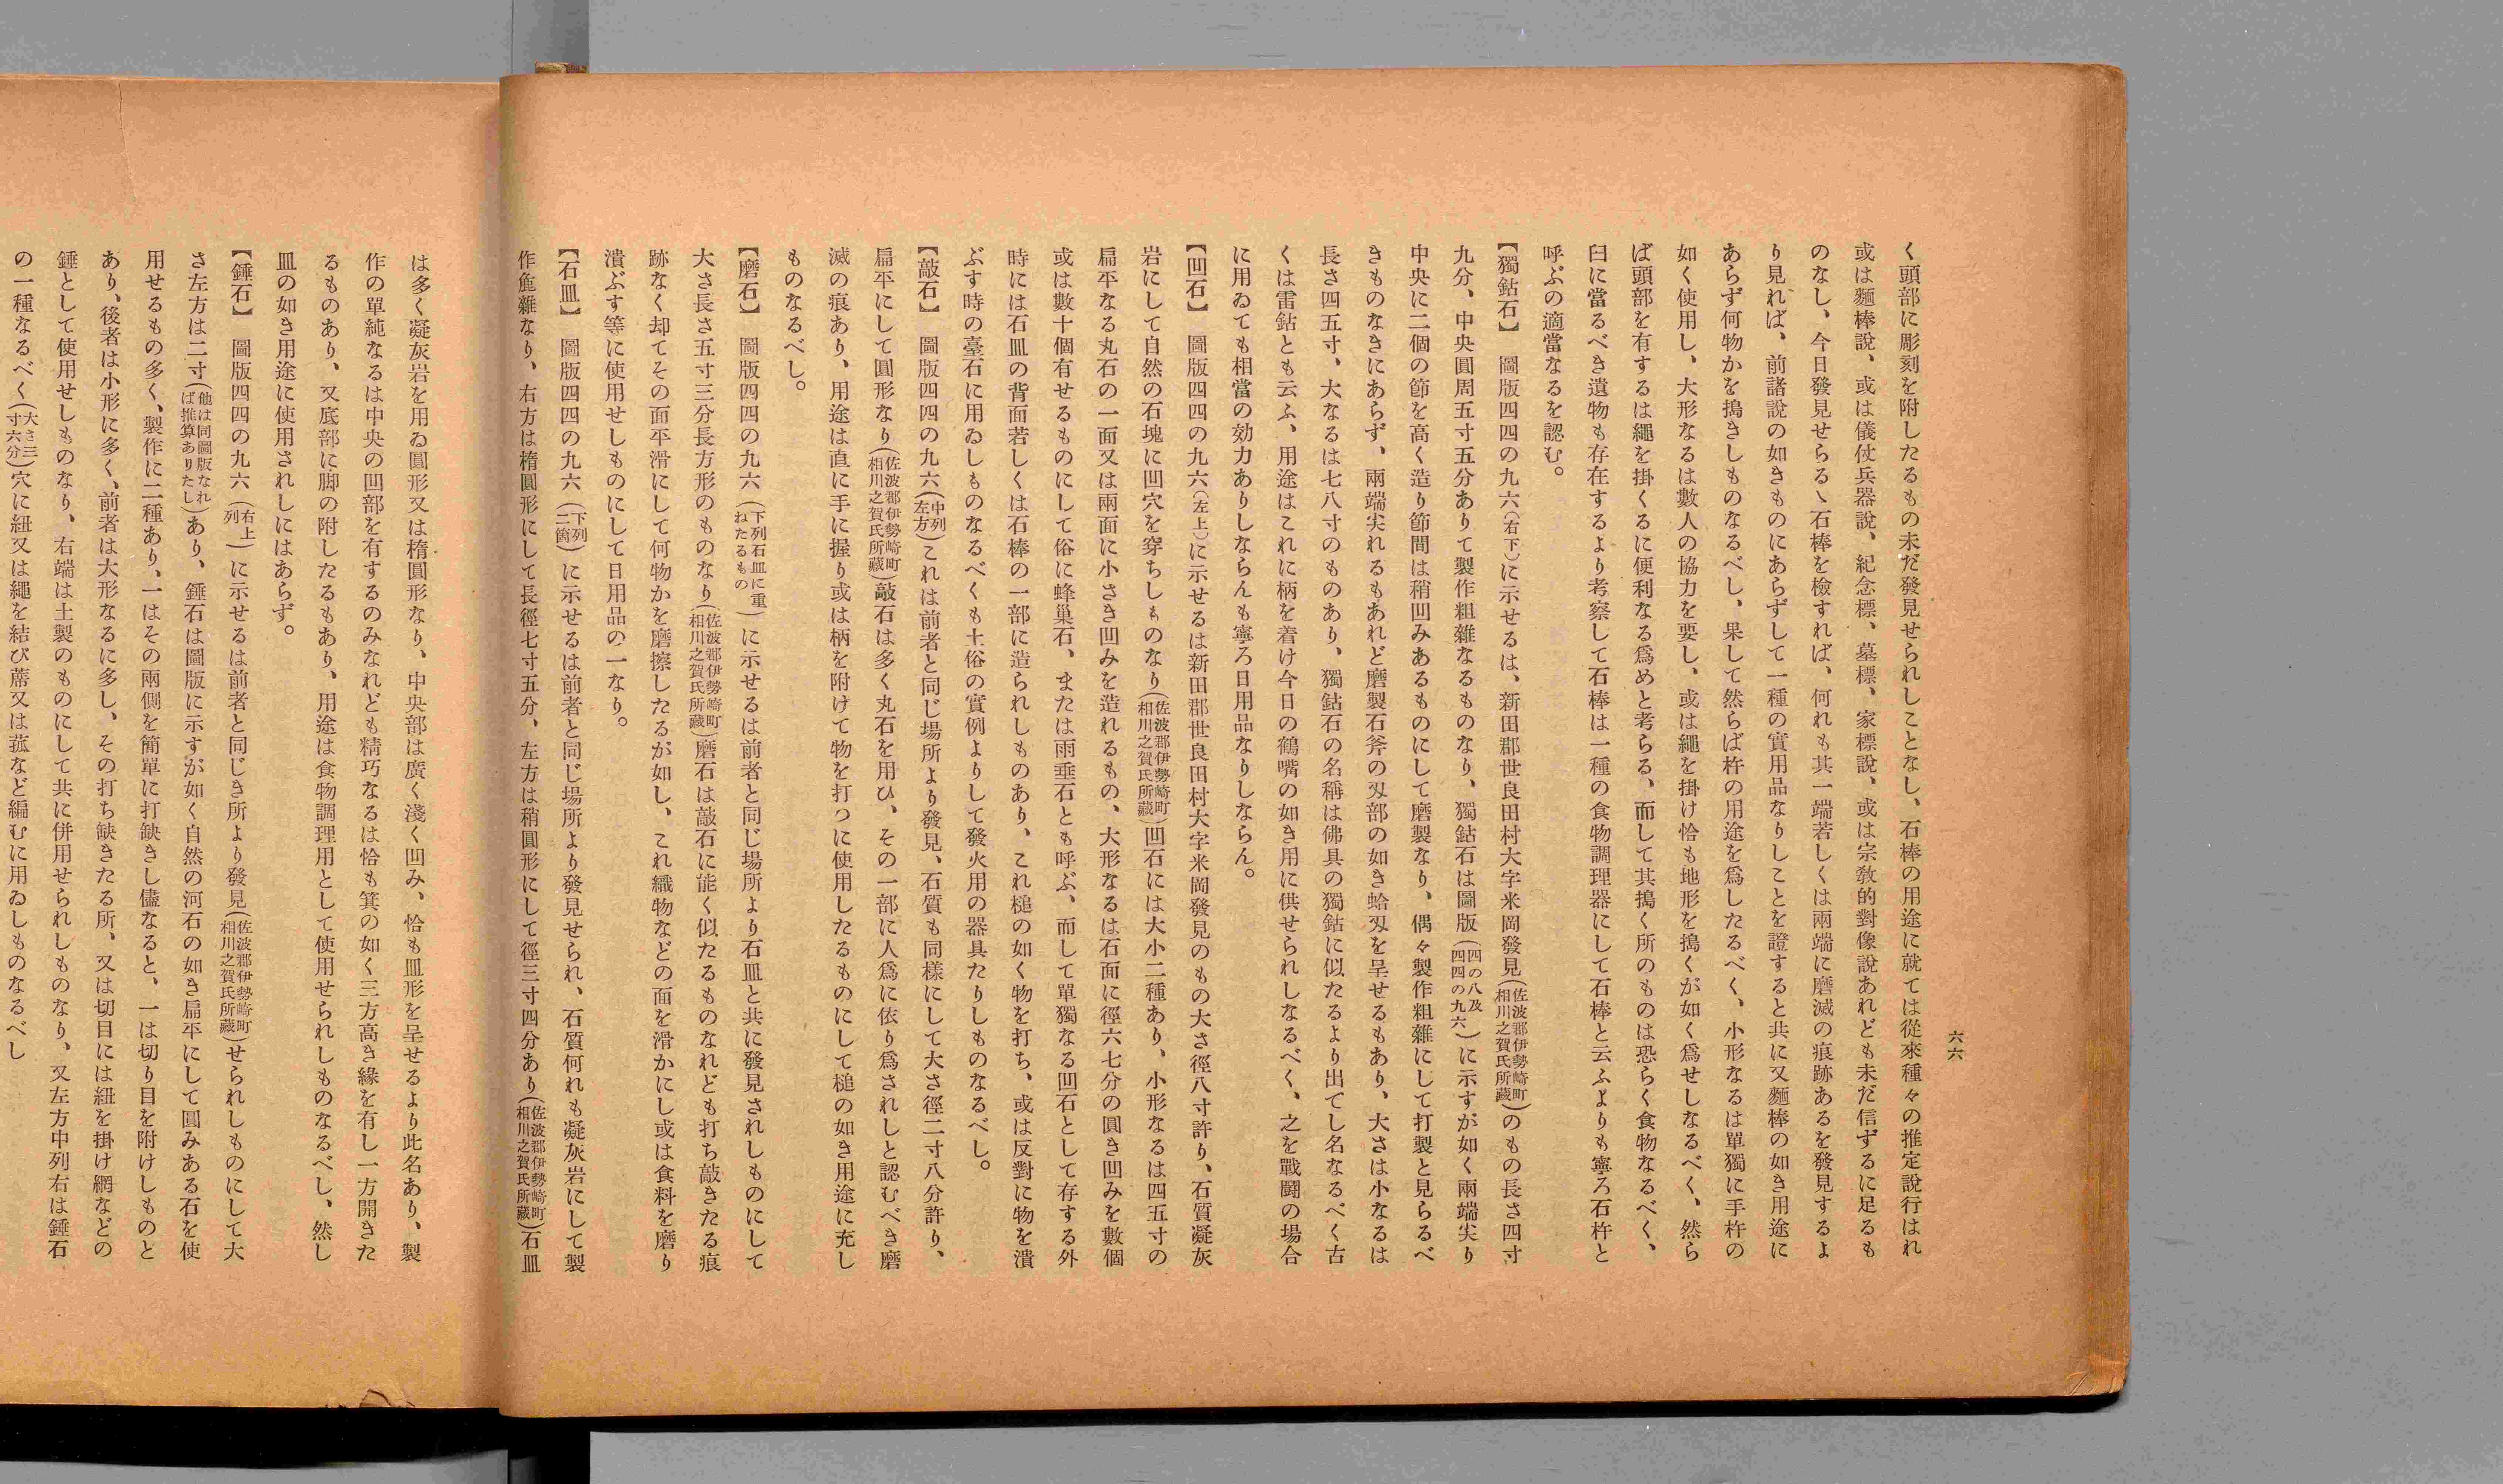 六六
く頭部に彫刻を附したるもの未だ發見せられしことなし、石棒の用途に就ては從來種々の推定說行はれ
或は麵棒說、或は儀仗兵器說、紀念標、墓標、家標說、或は宗敎的對像說あれども未だ信ずるに足るも
のなし、今日發見せらるゝ石棒を檢すれば、何れも其一端若しくは兩端に磨滅の痕跡あるを發見するよ
り見れば、前諸說の如きものにあらずして一種の實用品なりしことを證すると共に又麵棒の如き用途に
あらず何物かを搗きしものなるべし、果して然らば杵の用途を爲したるべく、小形なるは單獨に手杵の
如く使用し、大形なるは數人の協力を要し、或は繩を掛け恰も地形を搗くが如く爲せしなるべく、然ら
ば頭部を有するは繩を掛くるに便利なる爲めと考らる、而して其搗く所のものは恐らく食物なるべく、
臼に當るべき遺物も存在するより考察して石棒は一種の食物調理器にして石棒と云ふよりも寧ろ石杵と
呼ぶの適當なるを認む。
【獨鈷石】　圖版四四の九六（右下）に示せるは、新田郡世良田村大字米岡發見（佐波郡伊勢崎町相川之賀氏所藏）のもの長さ四寸
九分、中央圓周五寸五分ありて製作粗雜なるものなり、獨鈷石は圖版（四四の八及四四の九六）に示すが如く兩端尖り
中央に二個の節を高く造り節間は稍凹みあるものにして磨製なり、偶々製作粗雜にして打製と見らるべ
きものなきにあらず、兩端尖れるもあれど磨製石斧の刄部の如き蛤刄を呈せるもあり、大さは小なるは
長さ四五寸、大なるは七八寸のものあり、獨鈷石の名稱は佛具の獨鈷に似たるより出てし名なるべく古
くは雷鈷とも云ふ、用途はこれに柄を着け今日の鶴嘴の如き用に供せられしなるべく、之を戰鬪の場合
に用ゐても相當の効力ありしならんも寧ろ日用品なりしならん。
【凹石】　圖版四四の九六（左上）に示せるは新田郡世良田村大字米岡發見のもの大さ徑八寸許り、石質凝灰
岩にして自然の石塊に凹穴を穿ちしものなり（佐波郡伊勢崎町相川之賀氏所藏）凹石には大小二種あり、小形なるは四五寸の
扁平なる丸石の一面又は兩面に小さき凹みを造れるもの、大形なるは石面に徑六七分の圓き凹みを數個
或は數十個有せるものにして俗に蜂巢石、または雨垂石とも呼ぶ、而して單獨なる凹石として存する外
時には石皿の背面若しくは石棒の一部に造られしものあり、これ槌の如く物を打ち、或は反對に物を潰
ぶす時の臺石に用ゐしものなるべくも土俗の實例よりして發火用の器具たりしものなるべし。
【敲石】　圖版四四の九六（中列左方）これは前者と同じ場所より發見、石質も同樣にして大さ徑二寸八分許り、
扁平にして圓形なり（佐波郡伊勢崎町相川之賀氏所藏）敲石は多く丸石を用ひ、その一部に人爲に依り爲されしと認むべき磨
滅の痕あり、用途は直に手に握り或は柄を附けて物を打つに使用したるものにして槌の如き用途に充し
ものなるべし。
【磨石】　圖版四四の九六（下列石皿に重ねたるもの）に示せるは前者と同じ場所より石皿と共に發見されしものにして
大さ長さ五寸三分長方形のものなり（佐波郡伊勢崎町相川之賀氏所藏）磨石は敲石に能く似たるものなれども打ち敲きたる痕
跡なく却てその面平滑にして何物かを磨擦したるが如し、これ織物などの面を滑かにし或は食料を磨り
潰ぶす等に使用せしものにして日用品の一なり。
【石皿】　圖版四四の九六（下列二箇）に示せるは前者と同じ場所より發見せられ、石質何れも凝灰岩にして製
作麁雜なり、右方は楕圓形にして長徑七寸五分、左方は稍圓形にして徑三寸四分あり（佐波郡伊勢崎町相川之賀氏所藏）石皿
は多く凝灰岩を用ゐ圓形又は楕圓形なり、中央部は廣く淺く凹み、恰も皿形を呈せるより此名あり、製
作の單純なるは中央の凹部を有するのみなれども精巧なるは恰も箕の如く三方高き緣を有し一方開きた
るものあり、又底部に脚の附したるもあり、用途は食物調理用として使用せられしものなるべし、然し
皿の如き用途に使用されしにはあらず。
【錘石】　圖版四四の九六（右上列）に示せるは前者と同じき所より發見（佐波郡伊勢崎町相川之賀氏所藏）せられしものにして大
さ左方は二寸（他は同圖版なれば推算ありたし）あり、錘石は圖版に示すが如く自然の河石の如き扁平にして圓みある石を使
用せるもの多く、製作に二種あり、一はその兩側を簡單に打缺きし儘なると、一は切り目を附けしものと
あり、後者は小形に多く、前者は大形なるに多し、その打ち缺きたる所、又は切目には紐を掛け網などの
錘として使用せしものなり、右端は土製のものにして共に併用せられしものなり、又左方中列右は錘石
の一種なるべく（大さ三寸六分）穴に紐又は繩を結び蓆又は菰など編むに用ゐしものなるべし